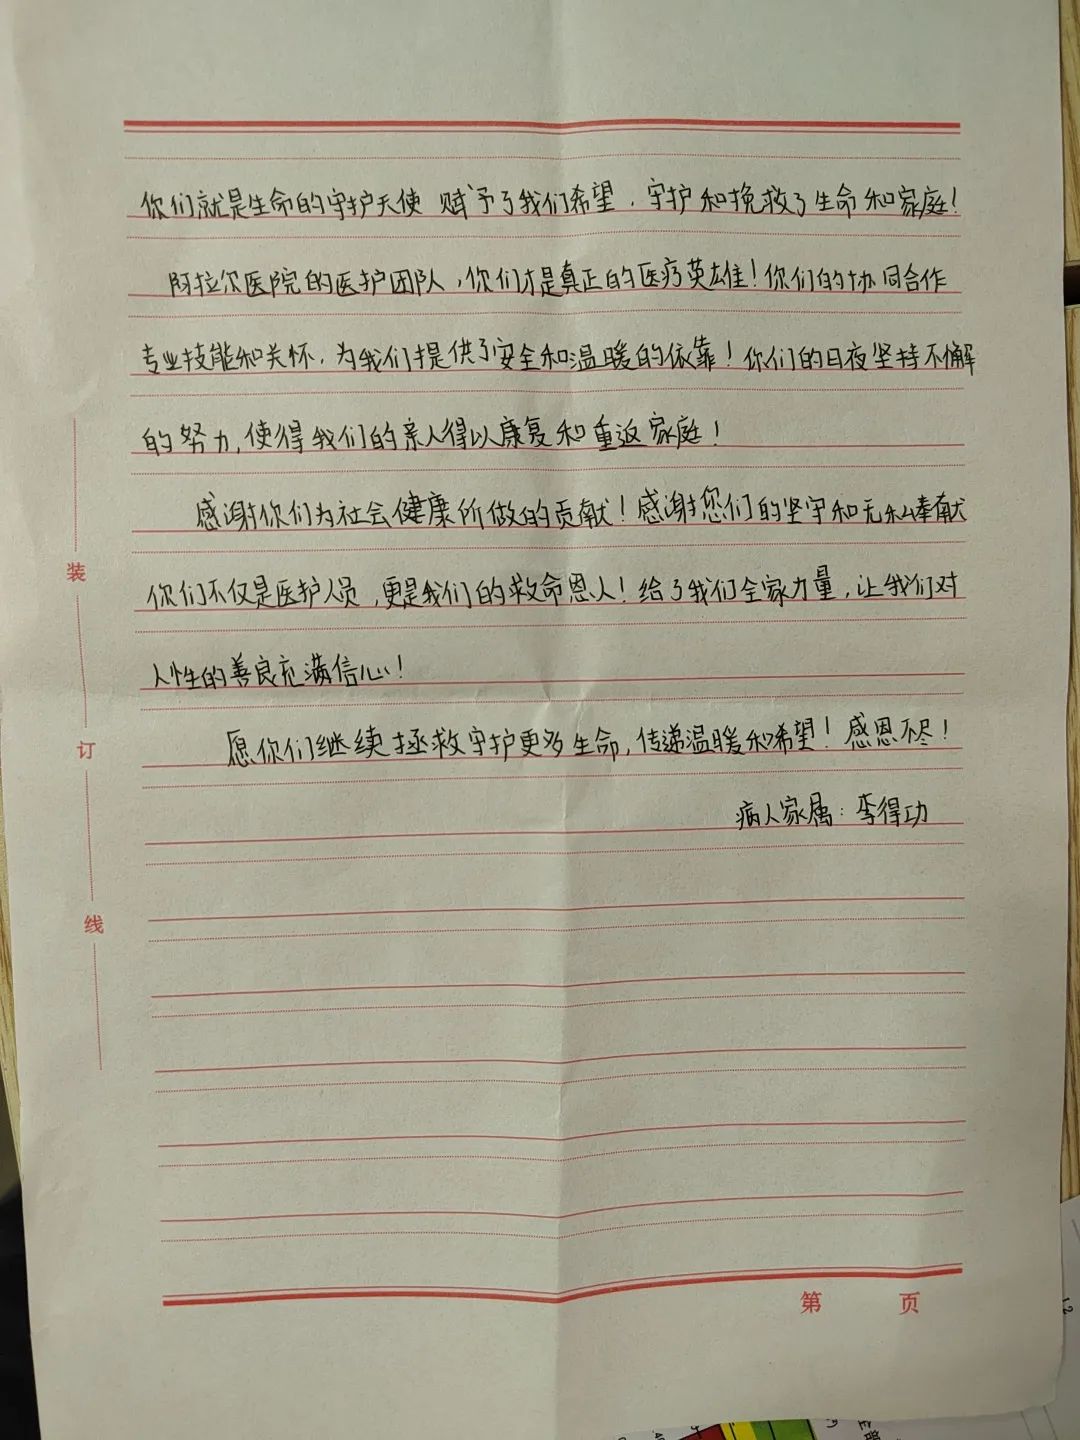 你们就是生命的守护天使 赋予了我们希望，守护和挽救了生命和家庭！
阿拉尔医院的医护团队，你们才是真正的医疗英雄！你们的协同合作
专业技能和关怀，为我们提供了安全和温暖的依靠！你们的日夜坚持不懈
的努力，使得我们的亲人得以康复和重返家庭！
感谢你们为社会健康所做的贡献！感谢您们的坚守和无私奉献
你们不仅是医护人员，更是我们的救命恩人！给了我们全家力量，让我们对
人性的善良充满信心！
愿你们继续拯救守护更多生命，传递温暖和希望！感恩不尽！
病人家属：李得功
装
订
线
第 页